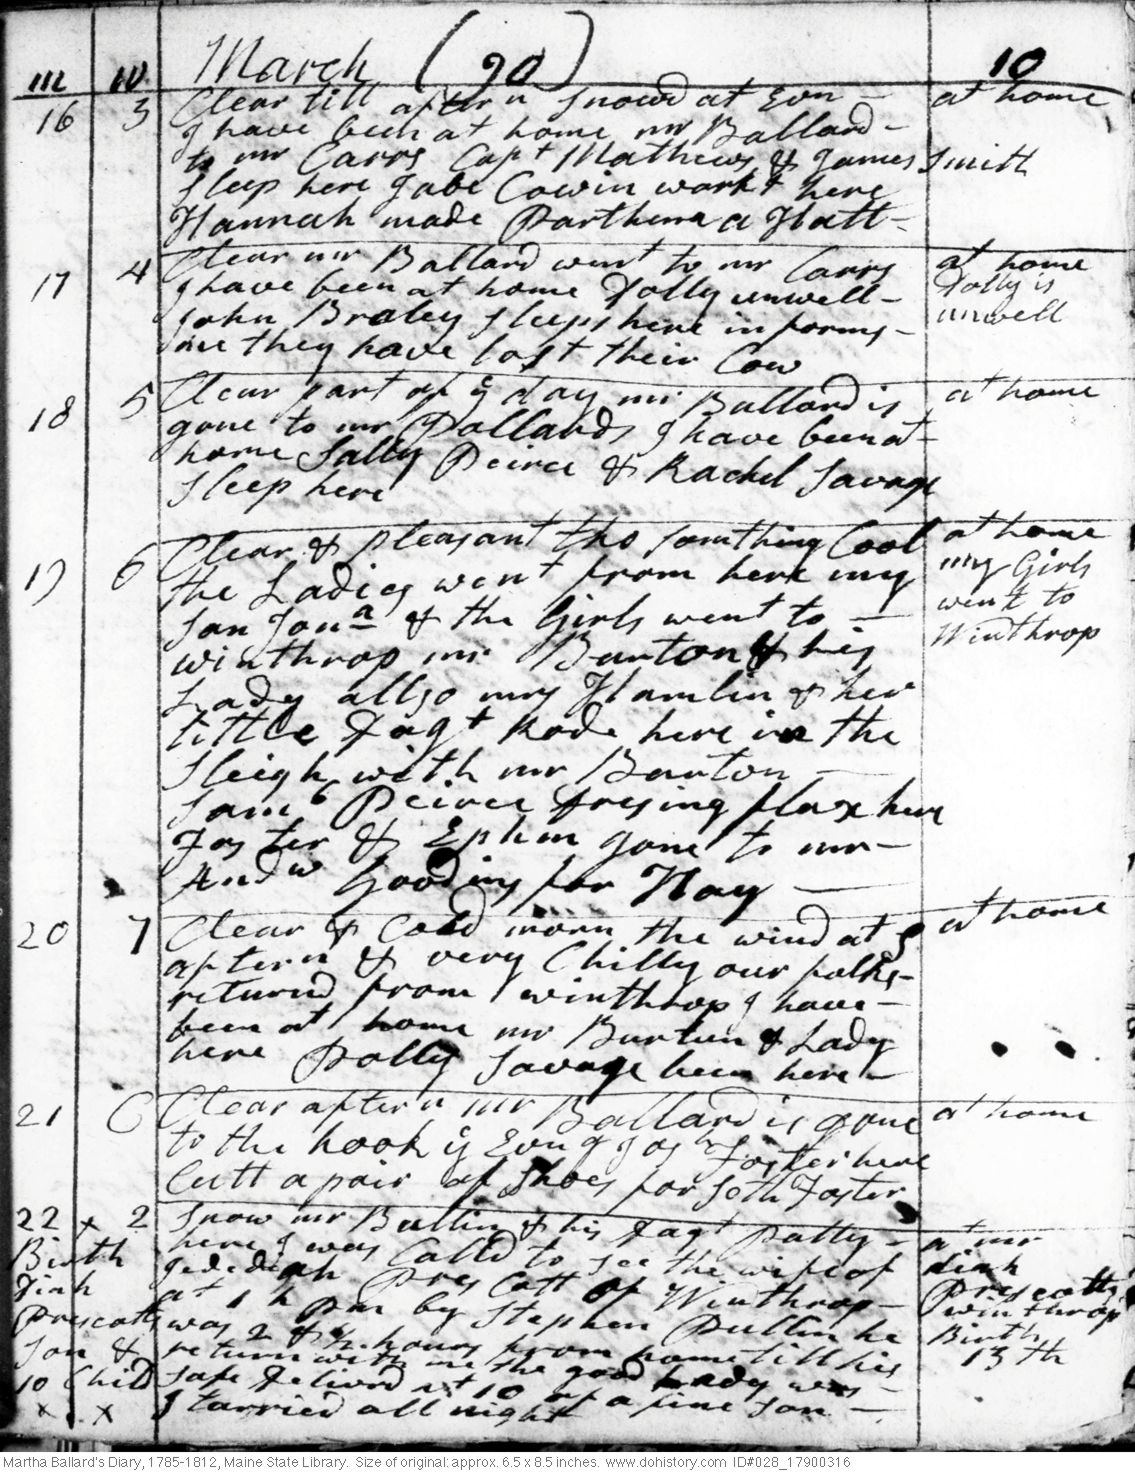 III IV March (90) 10
16 3 Clear till after n Snowd at Evn - at home
I have been at home mr Ballard -
to mr Carrs Capt Mathews & James Smith
Sleep here Jabe Cowin workt here
Hannah made Parthena a Hatt -
17 4 Clear mr Ballard went to mr Carrs at home
I have been at home Dolly unwell - Dolly is
John Braley sleeps here informs - unwell
me they have lost their Cow
18 5 Clear part of ye day mr Ballard is at home
gone to mr Pollards I have been at -
home Sally Peirce & Rachel Savage
Sleep here
19 6 Clear & pleasant tho somthing Cool at home
the Ladies went from here my my Girls
son Jona & the Girls went to - went to
winthrop mr Burton & his Winthrop
Lady allso mrs Hamlin & her
little Dagt Rode here in the
Sleigh with mr Burton -
Sam l Peirce dresing flax here
Foster & Ephm gone to mr -
Andw Goodins for Hay -
20 7 Clear & Cold morn the wind at S at home
aftern & very Chilly our folks -
returnd from winthrop I have -
been at home mr Burtun & Lady
here Polly Savage been here -
21 C Clear aftern mr Ballard is gone at home
to the hook ye Evng Josh Foster here
Cutt a pair of Shoes for Seth Foster
22 x 2 Snow mr Bullin & his Dagt Patty - at mr
Birth here I was Calld to See the wife of
Jedediah Prescott of Winthrop - Prescotts
at 1 h pm by Stephen Pullin he winthrop
Prescotts was 2 & ½ hours from home till his Birth
Son & return with me the good Lady was - 13th
10 Child safe Deliverd at 10 of a fine Son -
x . x I tarried all night
Martha Ballard's Diary, 1785-1812, Maine State Library. Size of original: approx. 6.5 x 8.5 inches. www.dohistory.com ID#028_17900316